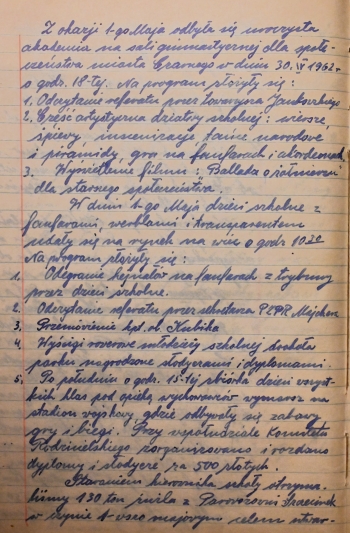 Z okazji 1-go Maja odbyła się uroczysta
akademia na sali gimnastycznej dla społe-
czeństwa miasta Czarnego w dniu 30. IV 1962 r
o godz. 18-tej. Na program złożyły się:
1. Odczytanie referatu przez towarzysza
2. Część artystyczna dziatwy szkolnej: wiersze,
śpiewy, inscenizacje, tańce narodowe
i piramidy, gra na fanfarach i akordeonach
3. Wyświetlenie filmu: Ballada o żołnierzu
dla starszego społeczeństwa.
W dniu 1-go Maja dzieci szkolne z
fanfarami, werblami i transparentem
udały się na rynek na wiec o godz 10.30
Na program złożyły się:
1. Odegranie hejnałów na fanfarach z trybuny
przez dzieci szkolne.
2. Odczytanie referatu przez sekretarza PZPR
3. Przemówienie kpt. ob. Kubika
4. Wyścigi rowerowe młodzieży szkolnej dookoła
parku nagrodzone słodyczami i dyplomami.
5. Po południu o godz. 15-tej zbiórka dzieci wszyst-
kich klas pod opieką wychowawców wymarsz na
stadion wojskowy, gdzie odbywały się zabawy
gry i biegi. Przy współudziale Komitetu
Rodzicielskiego zorganizowano i rozdano
dyplomy i słodycze za 500 złotych.
Staraniem kierownika szkoły otrzyma-
liśmy 130 ton żużla z Parowozowni Szczecinek
w czynie 1-szo majowym celem utwar-